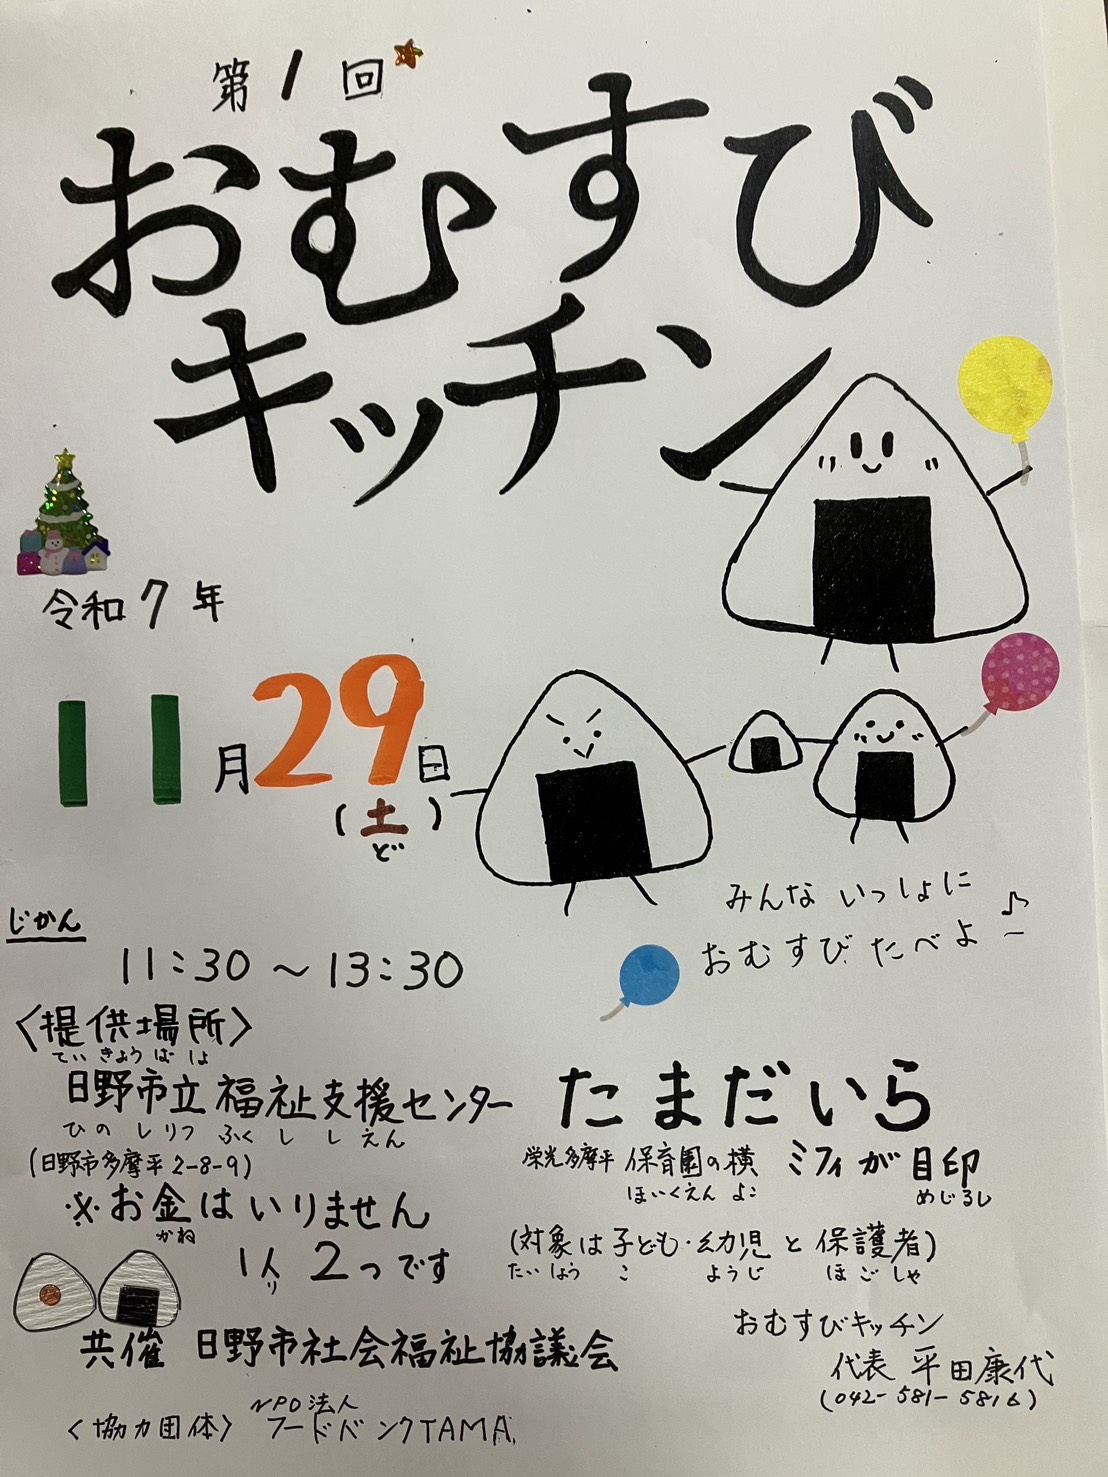 第1回
おむすび
キッチン
令和7年
11月29日
(土)
ど
みんないっしょに
おむすびたべよ〜♪
じかん
11:30〜13:30
〈提供場所〉
ていきょうばしょ
日野市立福祉支援センター たまだいら
ひの しりつ ふくし しえん
(日野市多摩平2-8-9)
栄光多摩平 保育園の横 ミフィが目印
ほいくえん よこ めじるし
※お金はいりません
かね
(対象は子ども・幼児と保護者)
たいしょう こ ようじ ほごしゃ
1人2つです
り
共催 日野市社会福祉協議会
おむすびキッチン
代表 平田康代
(042-581-5816)
〈協力団体〉 NPO法人
フードバンクTAMA.